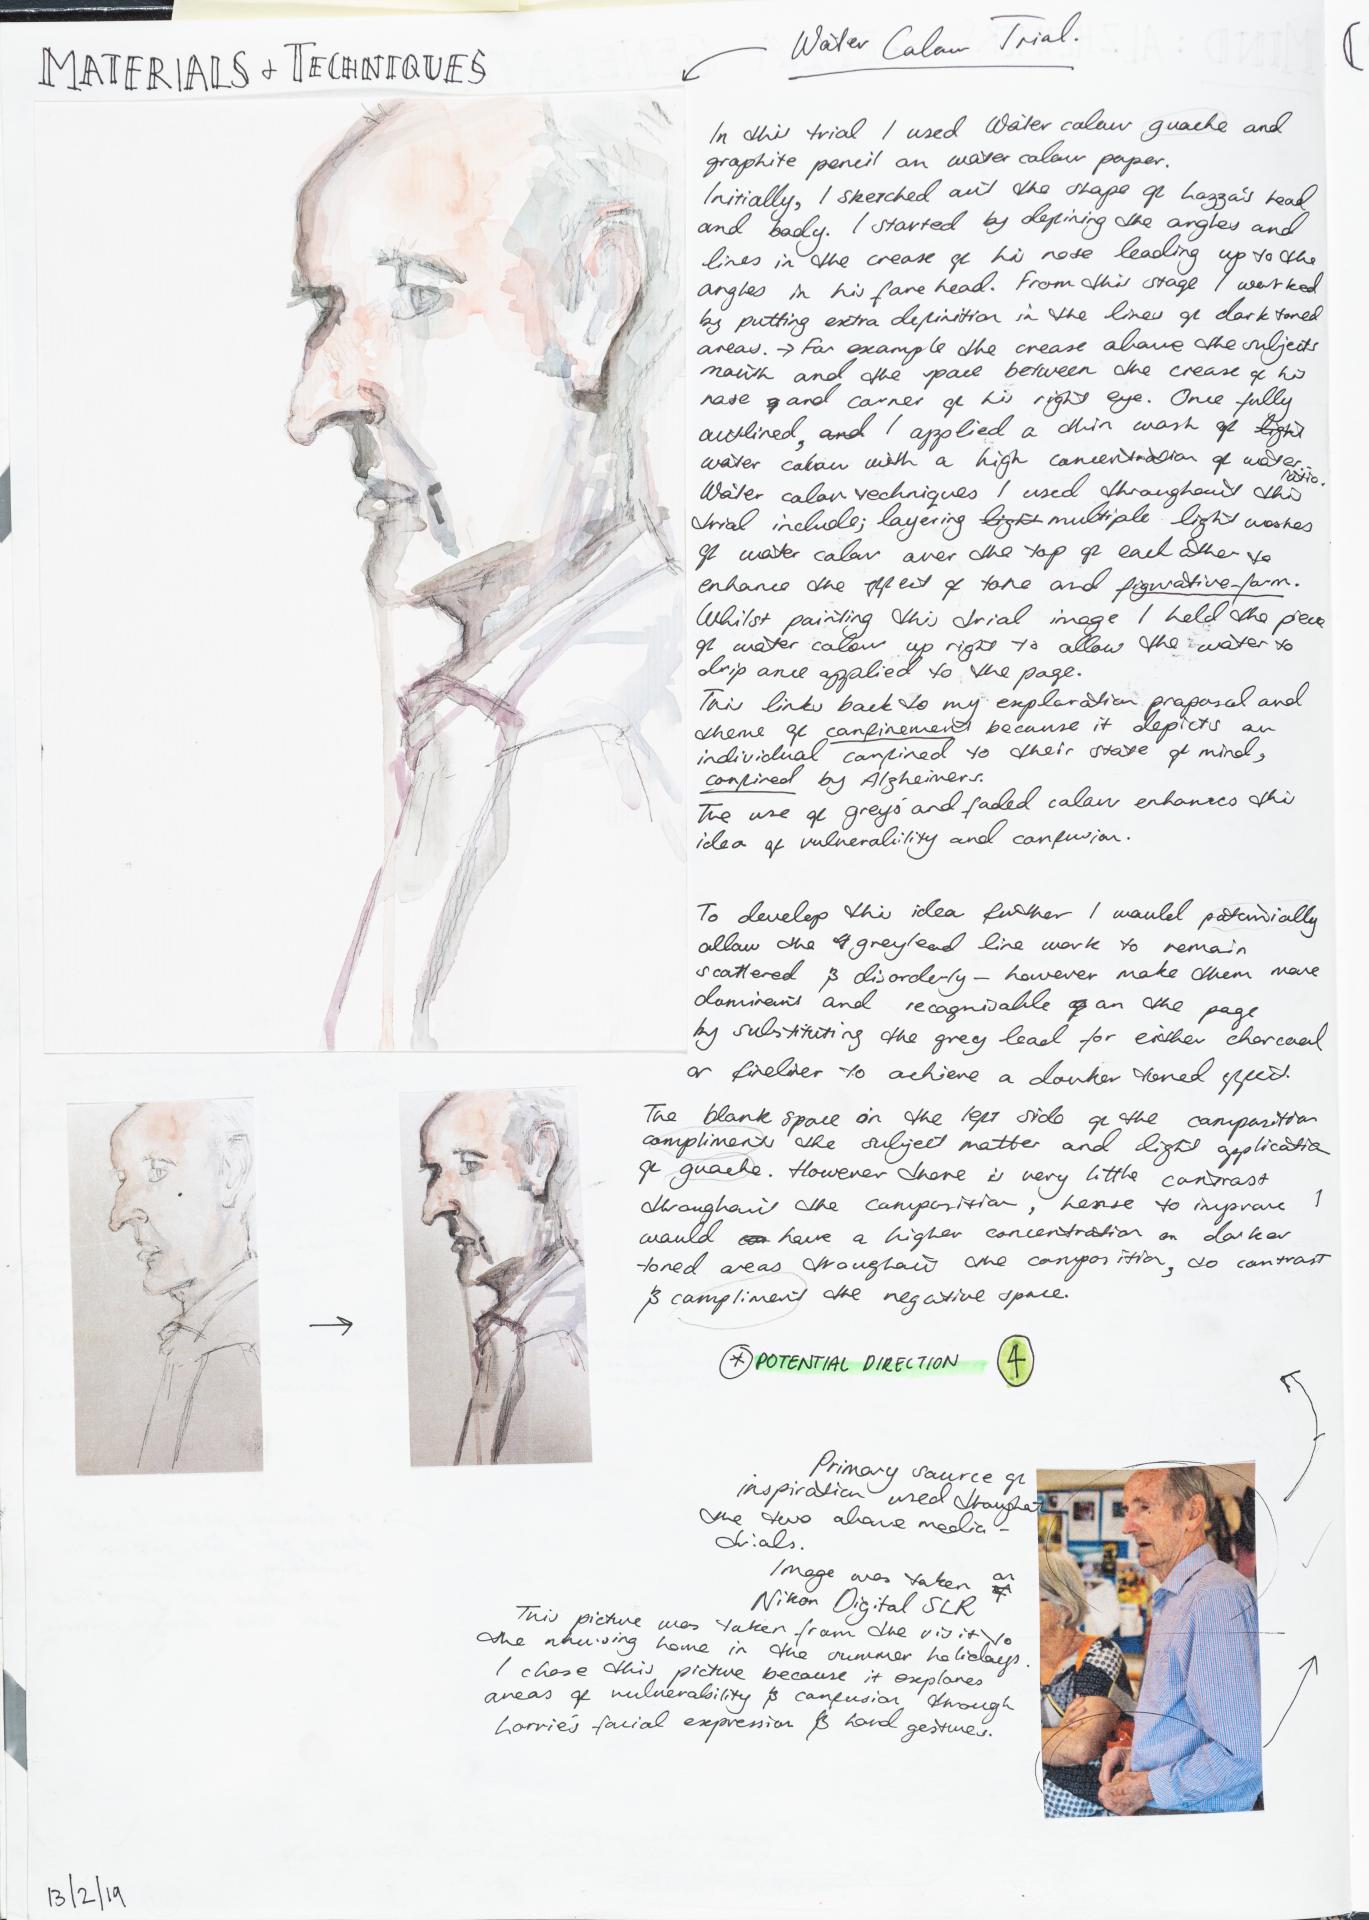 MATERIALS + TECHNIQUES
Water Colour Trial.
In this trial I used Water colour guache and
graphite pencil on water colour paper.
Initially, I sketched out the shape of hazza's head
and body. I started by defining the angles and
lines in the crease of his nose leading up to the
angles in his fore head. From this stage I worked
by putting extra definition in the lines of dark toned
areas. → For example the crease above the subjects
mouth and the space between the crease of his
nose and corner of his right eye. Once fully
outlined, and I applied a thin wash of light
water colour with a high concentration of water
ratio.
Water colour techniques I used throughout this
trial include; layering light multiple light washes
of water colour over the top of each other to
enhance the effect of tone and figurative-form.
Whilst painting this trial image I held the piece
of water colour up right to allow the water to
drip once applied to the page.
This links back to my exploration proposal and
theme of confinement because it depicts an
individual confined to their state of mind,
confined by Alzheimers.
The use of greys and faded colour enhances this
idea of vulnerability and confusion.
To develop this idea further I would potentially
allow the greylead line work to remain
scattered & disorderly – however make them more
dominant and recognisable on the page
by substituting the grey lead for either charcoal
or fineliner to achieve a darker toned effect.
The blank space on the left side of the composition
compliments the subject matter and light application
of guache. However there is very little contrast
throughout the composition, hense to improve I
would have a higher concentration on darker
toned areas throughout the composition, to contrast
& compliment the negative space.
* POTENTIAL DIRECTION 4
Primary source of
inspiration used throughout
the two above media –
trials.
Image was taken on
Nikon Digital SLR
This picture was taken from the visit to
the nursing home in the summer holidays.
I chose this picture because it explores
areas of vulnerability & confusion through
horrie's facial expression & hand gestures.
13/2/19